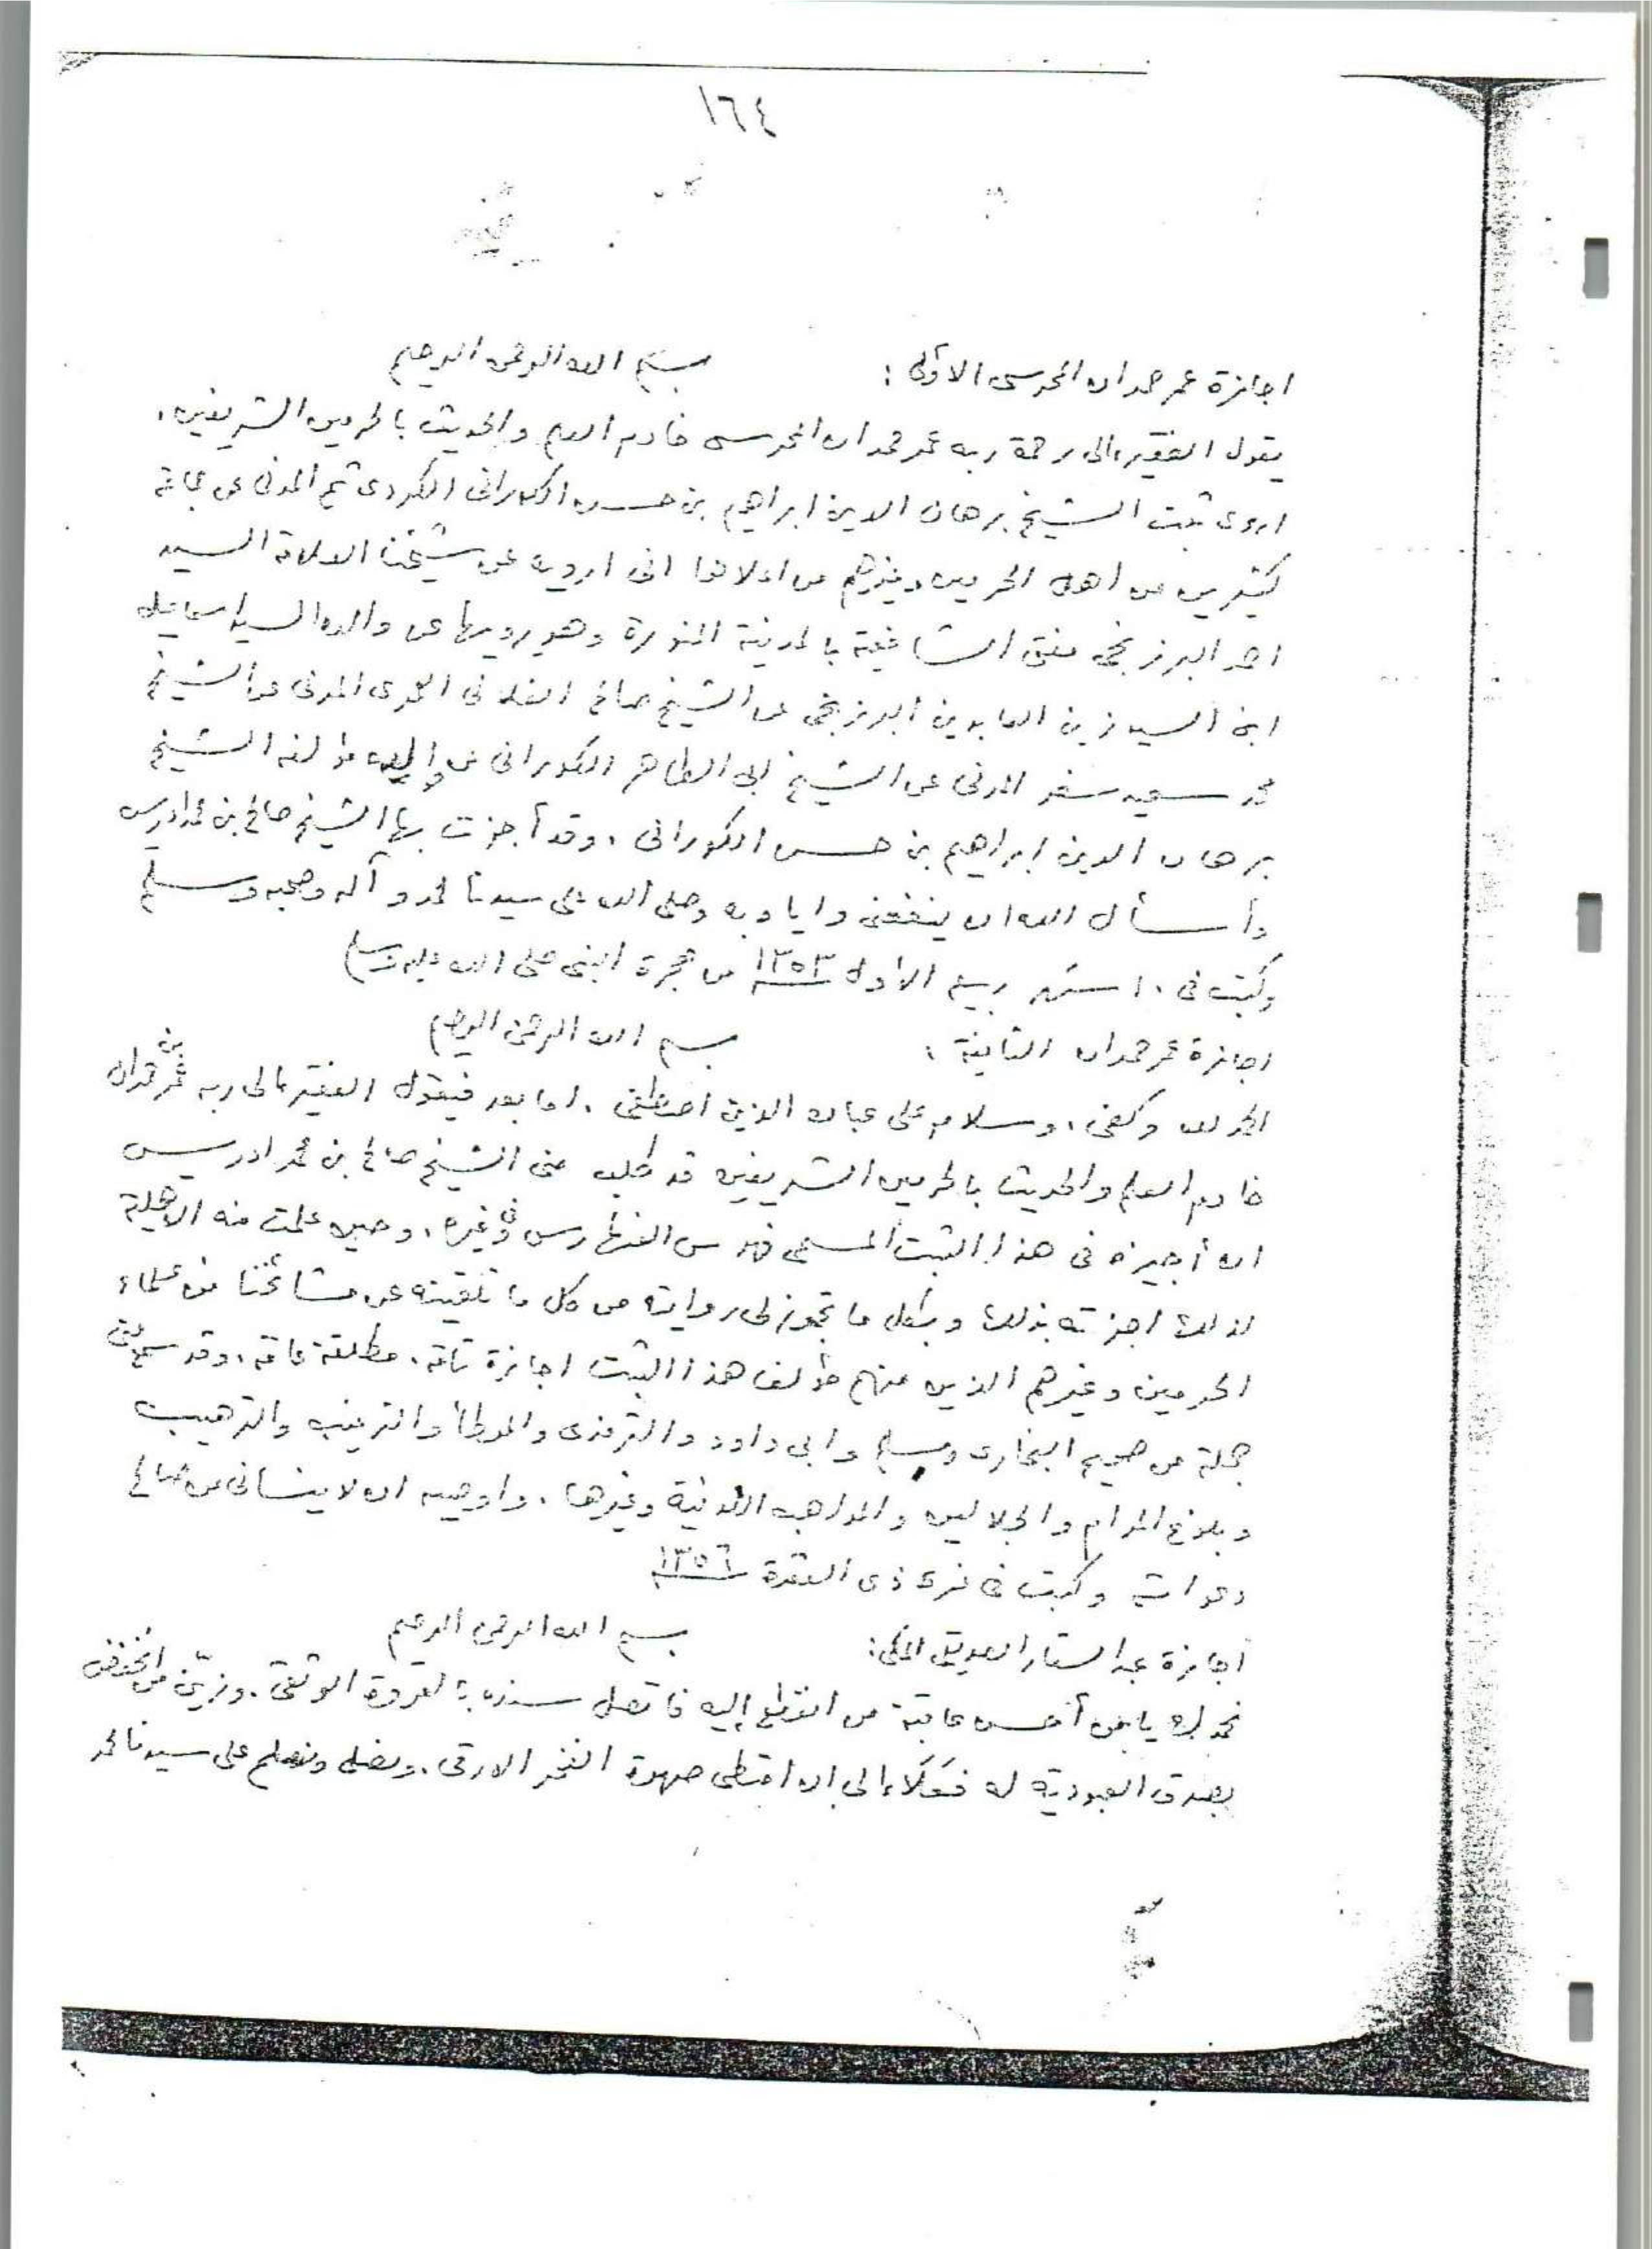 ١٦٤
اجازة عمر حمدان المحرسى الاولى : بسم الله الرحمن الرحيم
يقول الفقير الى رحمة ربه عمر حمدان المحرسى خادم العلم والحديث بالحرمين الشريفين .
اروى ثبت الشيخ برهان الدين ابراهيم بن حسن الكورانى الكردى ثم المدنى عن جماعة
كثيرين من اهل الحرمين وغيرهم من اعلاها انى ارويه عن شيخنا العلامة السيد
احمد البرزنجى مفتى الشافعية بالمدينة المنورة وهو يرويها عن والده السيد اسماعيل
ابن السيد زين العابدين البرزنجى عن الشيخ صالح الفلانى العمرى المدنى عن الشيخ
محمد سعيد سفر المدنى عن الشيخ ابى الطاهر الكورانى عن والده مؤلفه الشيخ
برهان الدين ابراهيم بن حسن الكورانى . وقد أجزت بها الشيخ صالح بن محمد ادريس
وأسأل الله ان ينفعنى واياه به وصلى الله على سيدنا محمد وآله وصحبه وسلم
وكتبت فى ١٠ شهر ربيع الأول ١٣٥٣ من هجرة النبى صلى الله عليه وسلم
اجازة عمر حمدان الثانية : بسم الله الرحمن الرحيم
الحمد لله وكفى ، وسلام على عباده الذين اصطفى . اما بعد فيقول الفقير الى ربه عمر بن حمدان
خادم العلم والحديث بالحرمين الشريفين قد طلب منى الشيخ صالح بن محمد ادريس
ان أجيزه فى هذا الثبت المسمى فهرس الفهارس وفى غيره ، وحين علمت منه الاهلية
لذلك اجزته بذلك وبكل ما تجوز لى روايته من كل ما تلقيته عن مشائخنا من علماء
الحرمين وغيرهم الذين منهم مؤلف هذا الثبت اجازة تامة ، مطلقة عامة ، وقد سمع منى
جملة من صحيح البخارى ومسلم وابى داود والترمذى والموطأ والترغيب والترهيب
وبلوغ المرام والجلالين والمواهب اللدنية وغيرها . واوصيه ان لا ينسانى من صالح
دعواته وكتبت فى غرة ذى القعدة ١٣٥٦
اجازة عبد الستار الصديقى المكى : بسم الله الرحمن الرحيم
نحمدك يا من أحسن عاقبة من انقطع إليه فاتصل سنده بالعروة الوثقى . وزيّن من انخفض
بصدق العبودية له فعَلَا الى ان امتطى صهوة الفخر الارقى . ونصلى ونسلم على سيدنا محمد